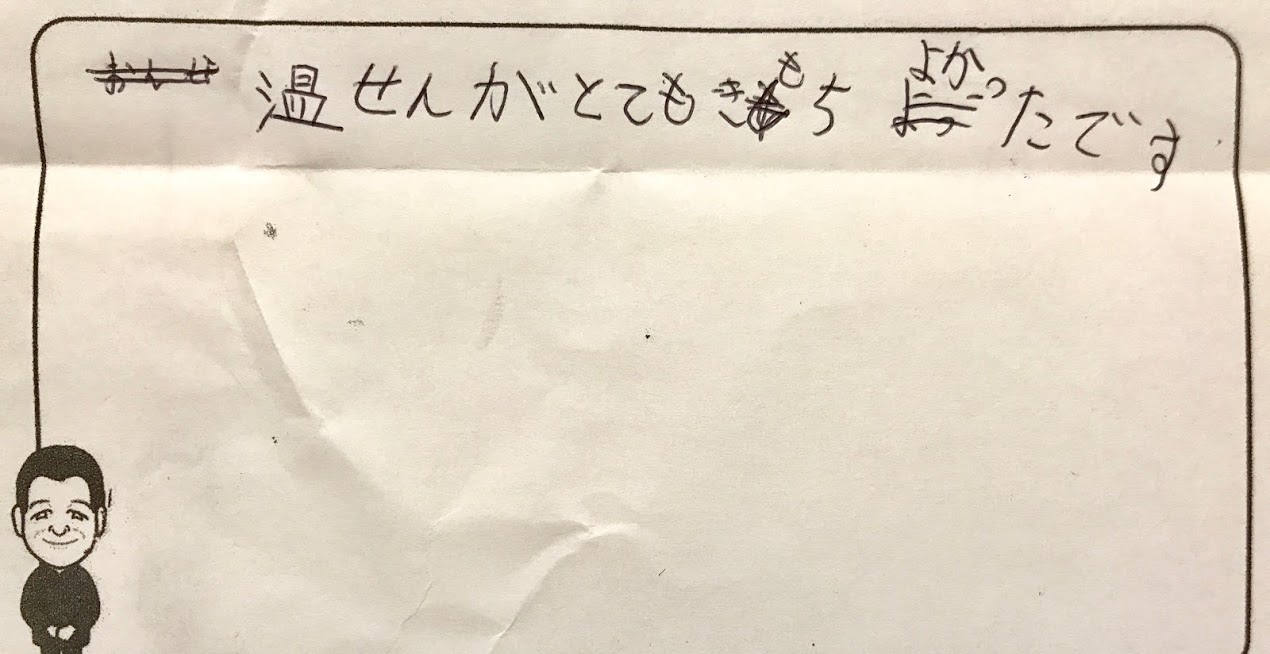 温せんがとてもきもち よかったです